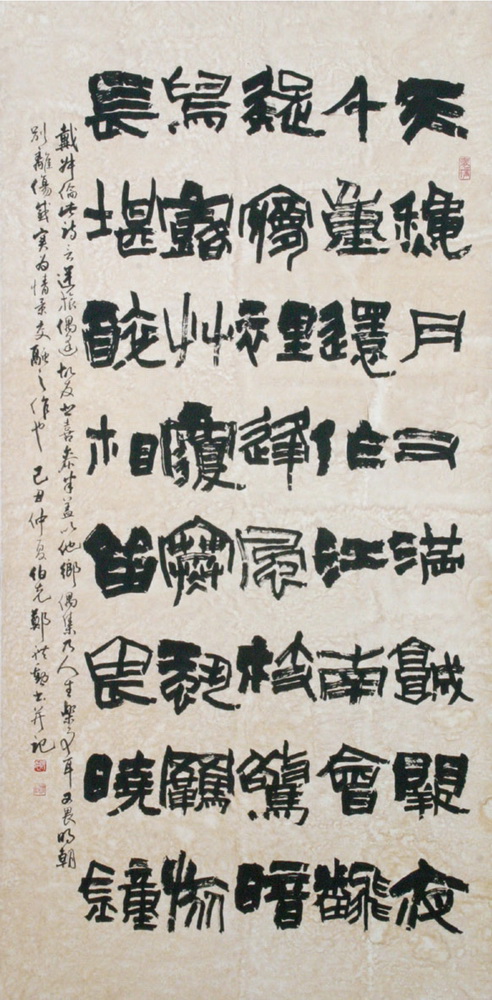 天穐月又满城闕夜
千重還作江南會翻
疑夢裡逢風枝驚暗
舄露艸覆寒蛩羈旅
長堪醉相留畏曉鐘
戴叔倫此詩言逢故友喜參半蓋以他鄉偶集乃人生樂事耳又畏明朝
別離傷感實為情景交融之作也 己丑仲夏伯克鄭書并記